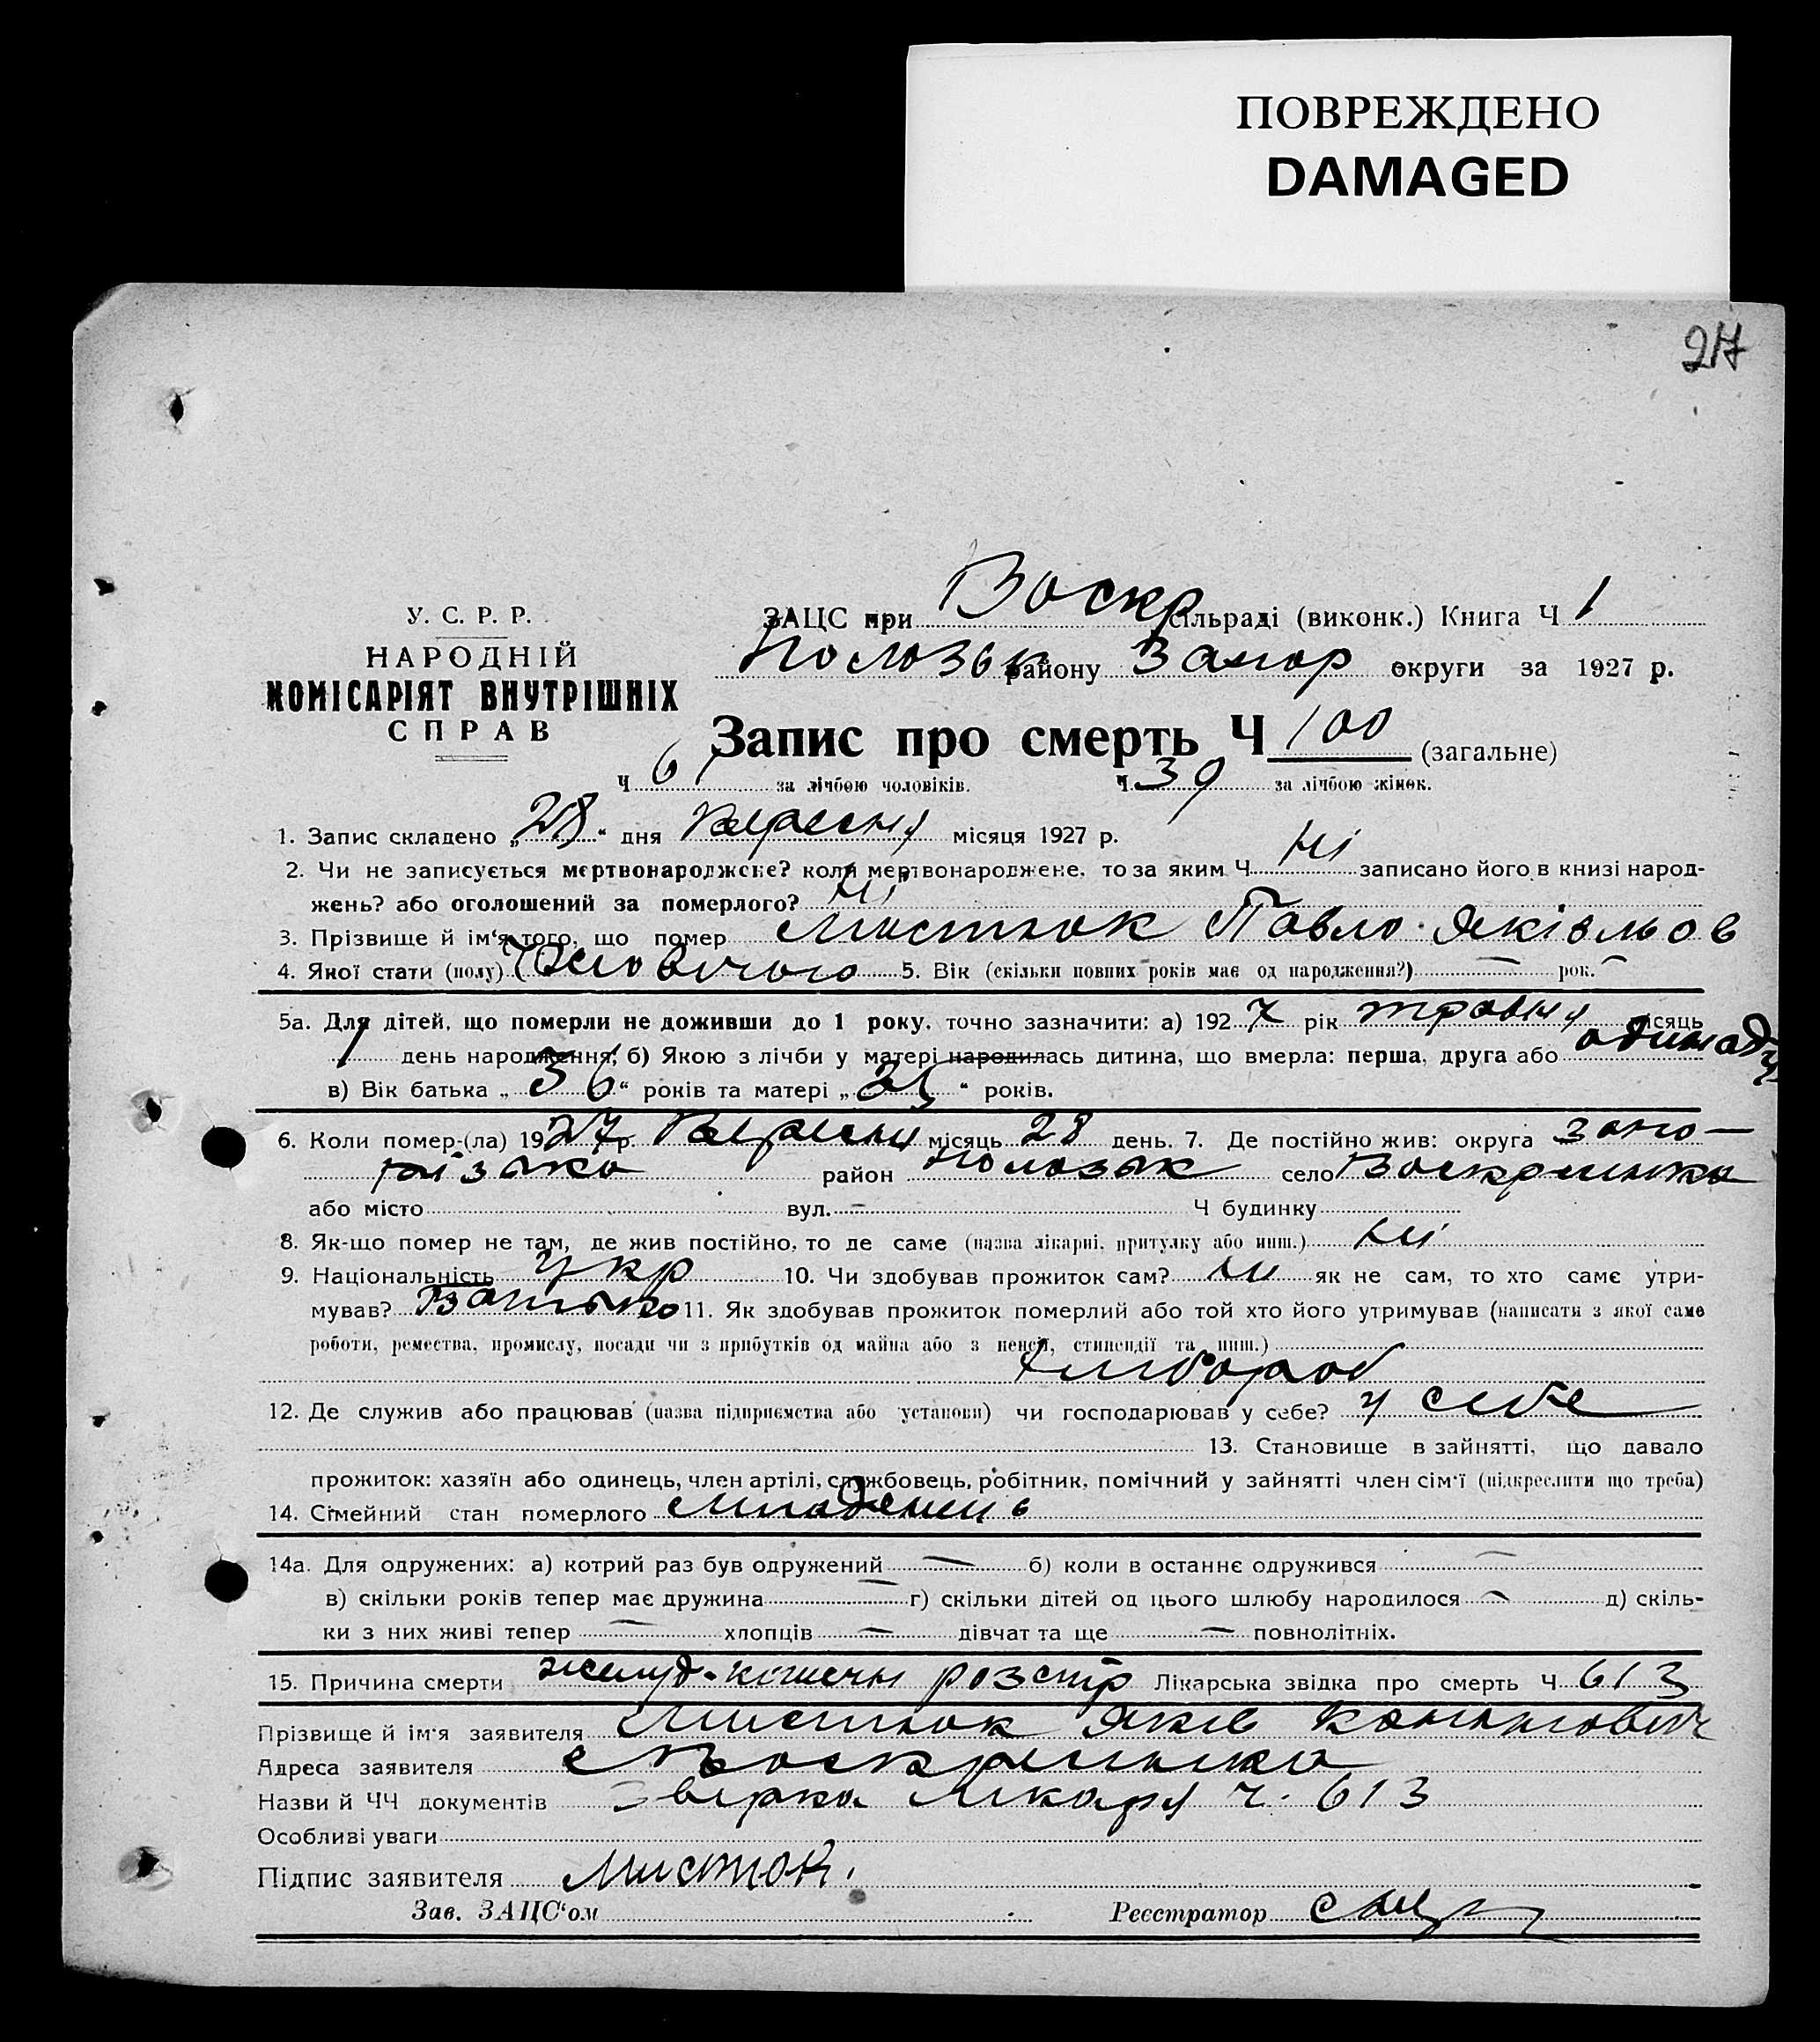 ПОВРЕЖДЕНО
DAMAGED
217
У. С. Р. Р.
НАРОДНІЙ
КОМІСАРІЯТ ВНУТРІШНІХ
СПРАВ
ЗАЦС при Воскр сільраді (виконк.) Книга Ч 1
Полозьк району Запор округи за 1927 р.
Запис про смерть Ч 100 (загальне)
Ч 61 за лічбою чоловіків. Ч 39 за лічбою жінок.
1. Запис складено „28“ дня Вересня місяця 1927 р.
2. Чи не записується мертвонароджене? коли мертвонароджене, то за яким Ч ні записано його в книзі народ-
жень? або оголошений за померлого? ні
3. Прізвище й ім‘я того, що помер Мистюк Павло Яківльов
4. Якої стати (полу) Чоловічого 5. Вік (скільки повних років має од народження?) — рок. —
5а. Для дітей, що померли не доживши до 1 року, точно зазначити: а) 1927 рік травня місяць
1 день народження; б) Якою з лічби у матері народилась дитина, що вмерла: перша, друга або
в) Вік батька „36“ років та матері „35“ років.
6. Коли помер-(ла) 1927 р. Вересня місяць 28 день. 7. Де постійно жив: округа запо-
різька район Полозьк село Воскресенка
або місто вул. — Ч будинку
8. Як-що помер не там, де жив постійно, то де саме (назва лікарні, притулку або инш.) ні
9. Національність укр 10. Чи здобував прожиток сам? ні як не сам, то хто саме утри-
мував? Батько 11. Як здобував прожиток померлий або той хто його утримував (написати з якої саме
роботи, ремества, промислу, посади чи з прибутків од майна або з пенсії, стипендії та инш.)
хлібороб
12. Де служив або працював (назва підприємства або установи) чи господарював у себе? у себе
13. Становище в зайнятті, що давало
прожиток: хазяїн або одинець, член артілі, службовець, робітник, помічний у зайнятті член сім‘ї (підкреслити що треба)
14. Сімейний стан померлого младенець
14а. Для одружених: а) котрий раз був одружений — б) коли в останнє одружився —
в) скільки років тепер має дружина — г) скільки дітей од цього шлюбу народилося — д) скіль-
ки з них живі тепер — хлопців — дівчат та ще — повнолітніх.
15. Причина смерти желуд-кішечн розстр Лікарська звідка про смерть Ч 613
Прізвище й ім‘я заявителя Мистюк Яків
Адреса заявителя с Воскресенка
Назви й ЧЧ документів Звірка Лікаря ч. 613
Особливі уваги
Підпис заявителя Мистюк.
Зав. ЗАЦС‘ом Реєстратор